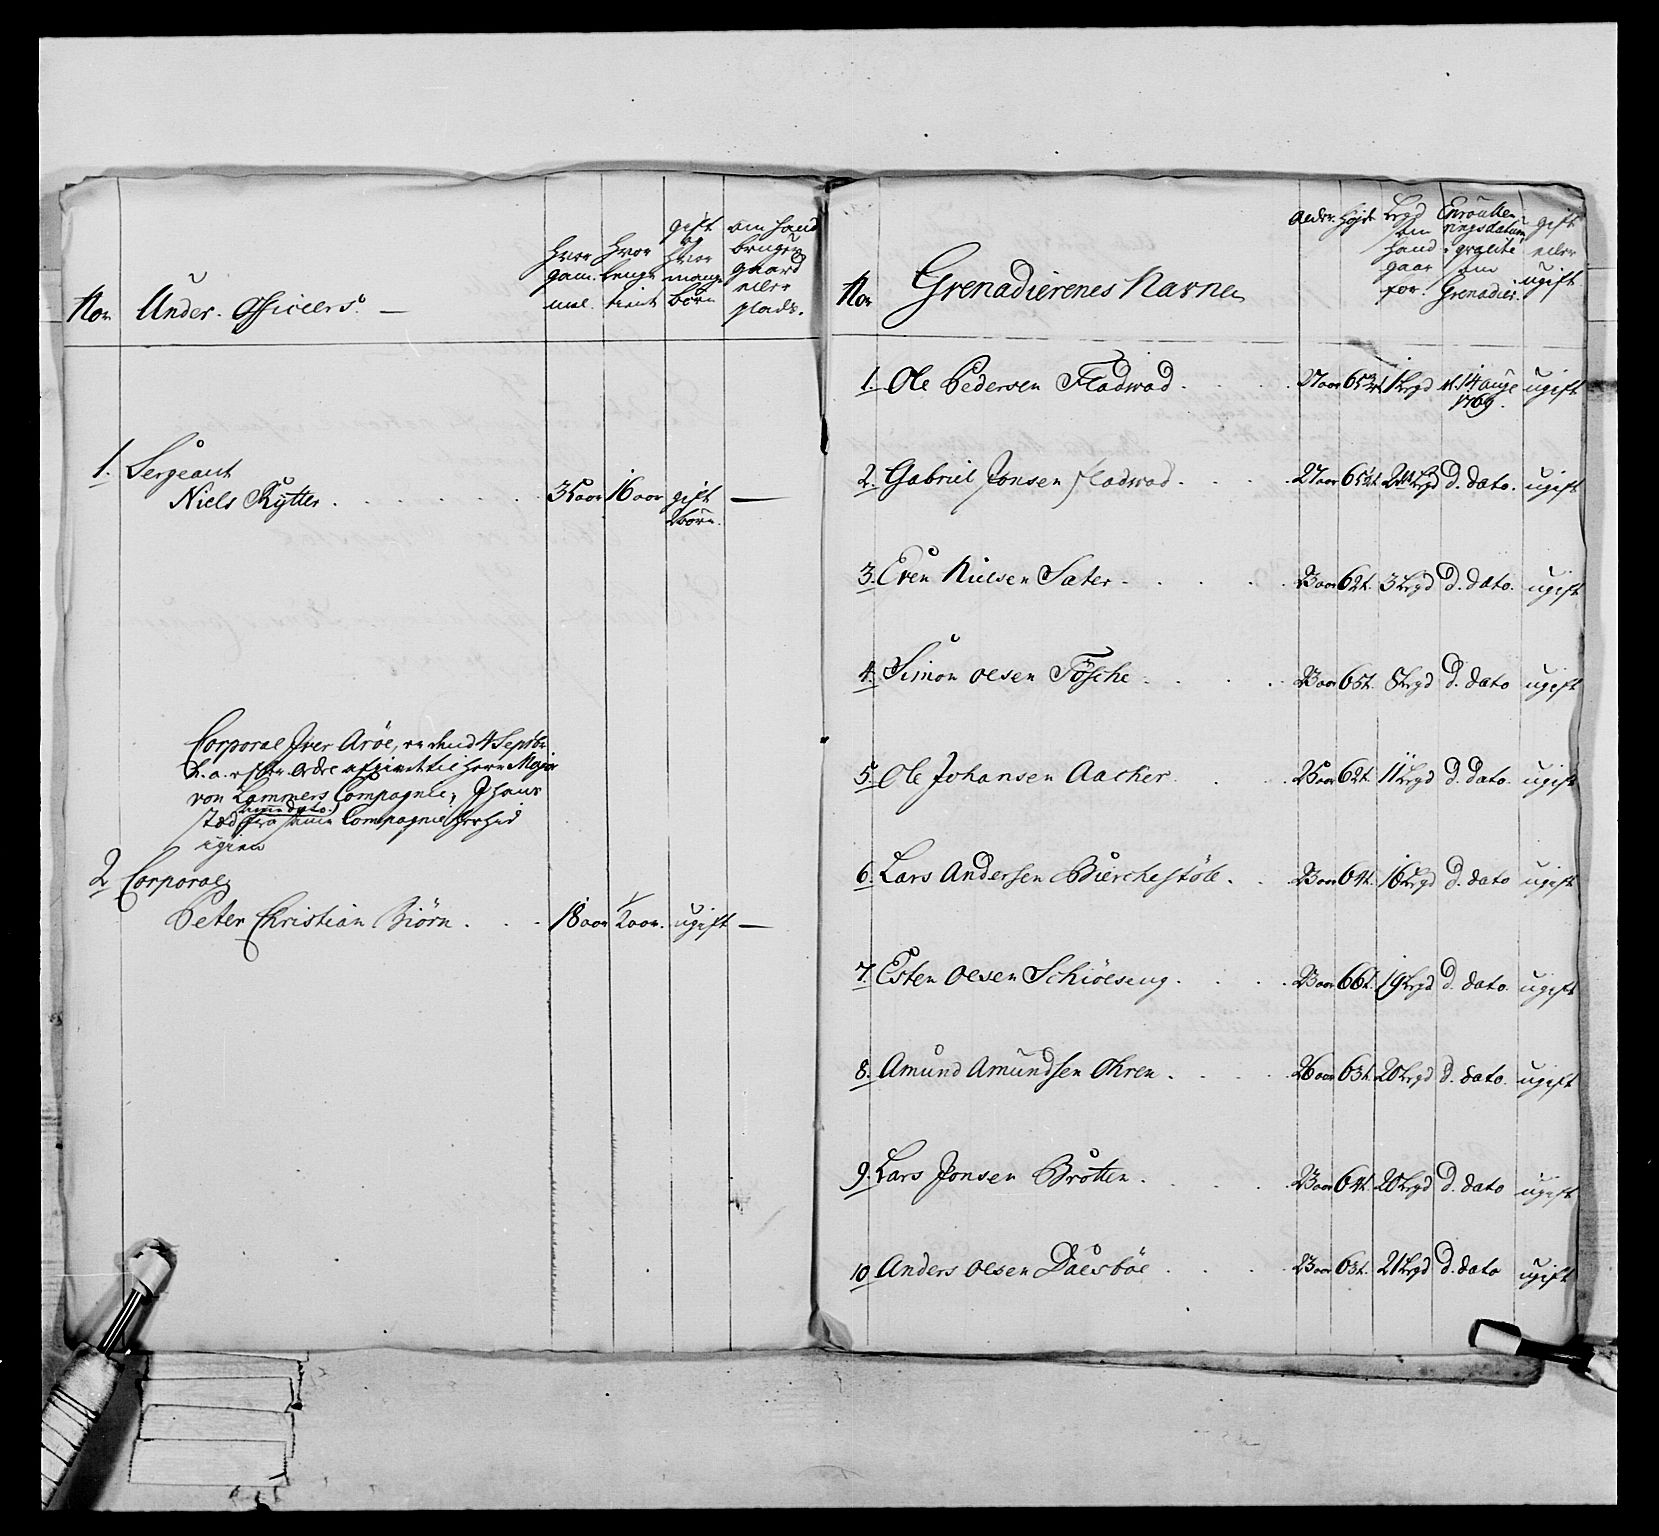 No.
Under. Officiers.
hvor gam. mel.
hvor lenge tient
gift og hvor mange børn
om hand bruger gaard eller plads.
1. Sergeant
Niels Rytter. 35 aar 16 aar gift 2 børn. —
Corporal Iver Aröe, er dend 4 Septbr.
h. a. efter Ordre afgivet til Herr Major
von Lammers Compagnie, I hans
sted fra samme Compagnie hid
igien
2 Corporal
Peter Christian Biörn. 18 aar 2 aar. ugift —
No.
Grenadierenes Navne
Alder. Højde Legd om hand gaar for. Enroullerings datum i qvalite som Grenadier. gift eller ugift
1. Ole Pedersen Fladwad. 27 aar 65 3/4 t. 1 Legd d. 14 aug 1769. ugift
2. Gabriel Jonsen Fladwad. 27 aar 2 Legd d. dato. ugift
3. Even Nielsen Sater. 23 aar 62 t. 3 Legd d. dato. ugift
4. Simon Olsen Fösche. 23 aar 65 t. 8 Legd d. dato ugift
5. Ole Johansen Aacker. 25 aar 62 t. 11 Legd d. dato. ugift
6. Lars Andersen Bierchestöle. 23 aar 64 t. 16 Legd d. dato ugift
7. Esten Olsen Schiölseng. 23 aar 66 t. 19 Legd d. dato. ugift
8. Amund Amundsen Ohren. 26 aar 63 t. 20 Legd d. dato. ugift
9. Lars Jonsen Brotten. 23 aar 64 t. 20 Legd d. dato ugift
10 Anders Olsen Dalsböe. 23 aar 63 t. 21 Legd d. dato ugift